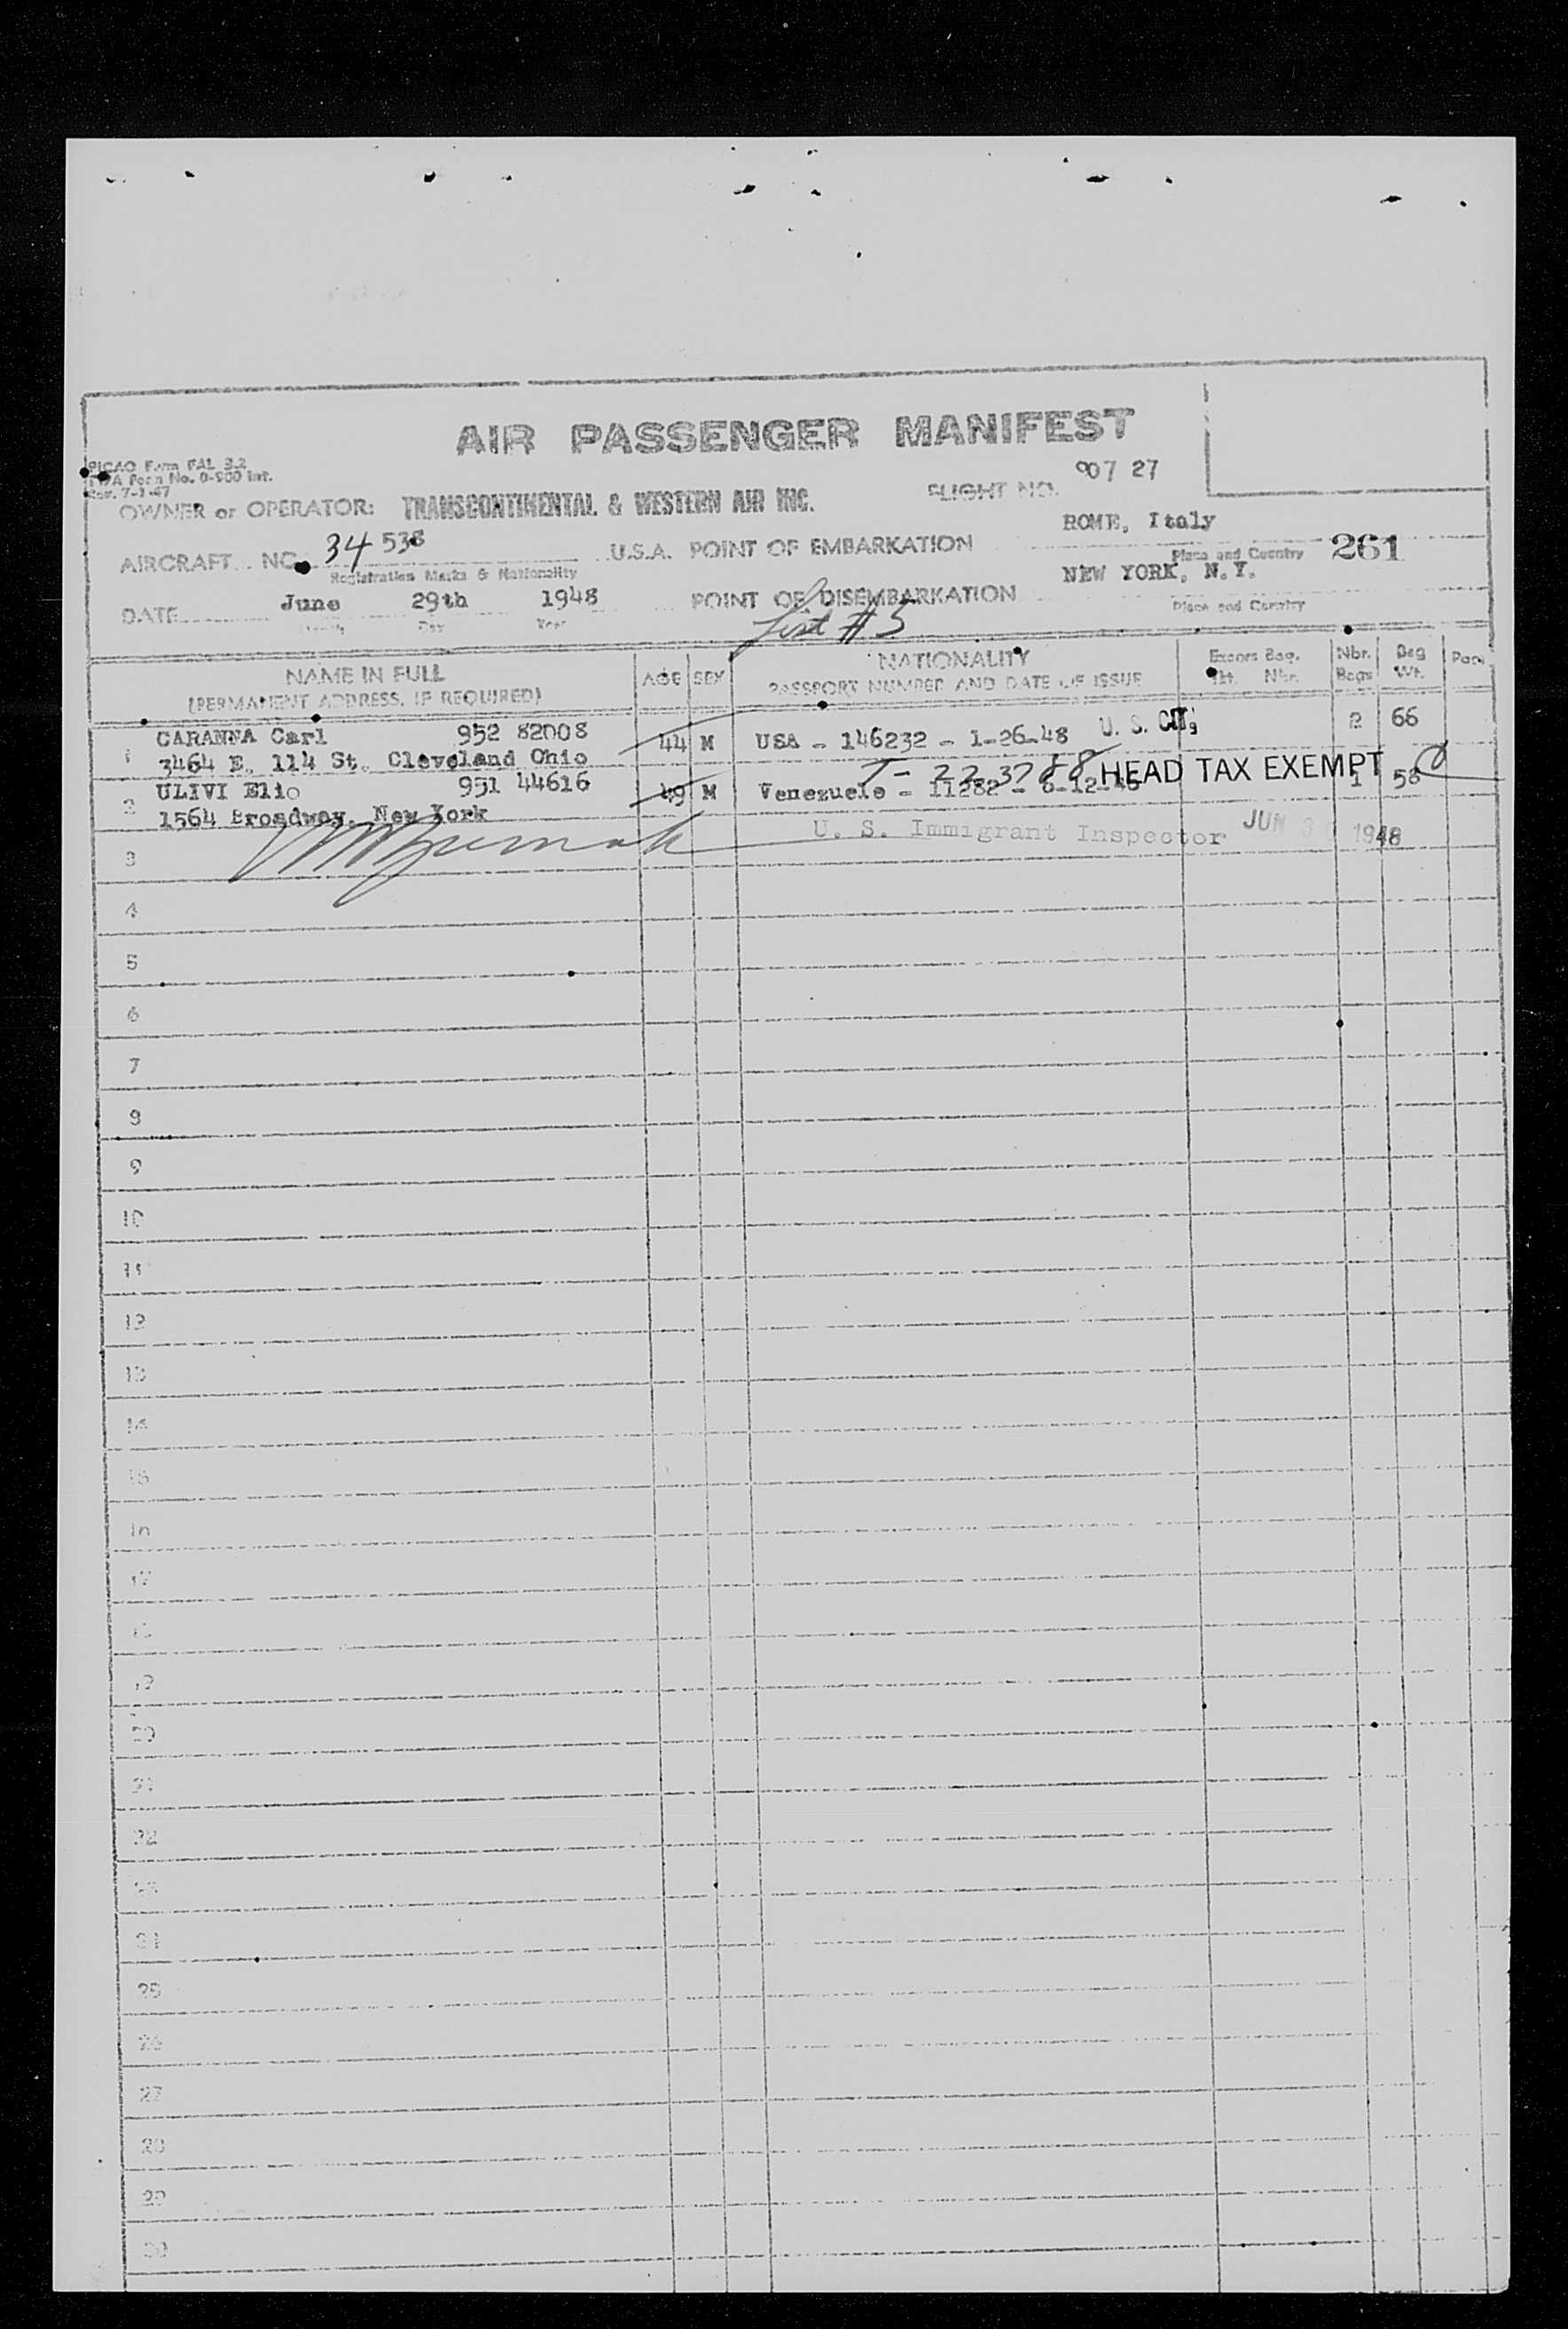 AIR PASSENGER MANIFEST
PICAO Form FAL 3.2
TWA Form No. 0-900 Int.
Rev. 7-1-47
FLIGHT NO. 907 27
OWNER or OPERATOR: TRANSCONTINENTAL & WESTERN AIR INC.
ROME, Italy
AIRCRAFT NO. 34 538 U.S.A. POINT OF EMBARKATION
Registration Marks & Nationality
Place and Country 261
NEW YORK, N.Y.
DATE June 29th 1948 POINT OF DISEMBARKATION
Month Day Year
Place and Country
List #5
NAME IN FULL
(PERMANENT ADDRESS, IF REQUIRED)
AGE SEX
NATIONALITY
PASSPORT NUMBER AND DATE OF ISSUE
Excess Bag.
Wt. Nbr.
Nbr. Bags
Bag Wt.
1 CARANNA Carl 952 82008 44 M USA - 146232 - 1-26-48 U. S. CIT. 2 66
3464 E. 114 St. Cleveland Ohio
HEAD TAX EXEMPT
2 ULIVI Elio 951 44616 49 M Venezuela - 11282 - 6-12-46 1 58
1564 Broadway, New York
3 U. S. Immigrant Inspector JUN 30 1948
4
5
6
7
8
9
10
11
12
13
14
15
16
17
18
19
20
21
22
23
24
25
26
27
28
29
30